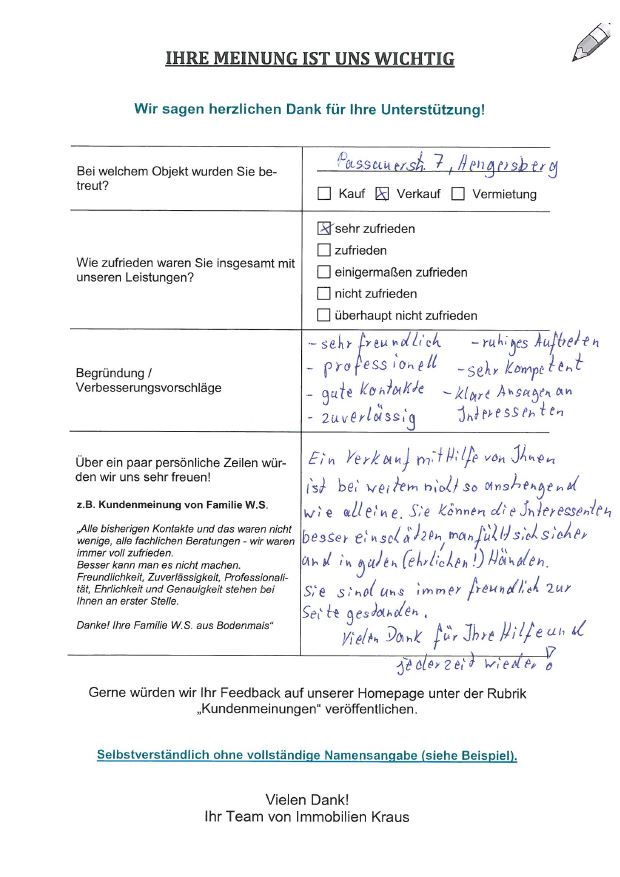 IHRE MEINUNG IST UNS WICHTIG
Wir sagen herzlichen Dank für Ihre Unterstützung!
Bei welchem Objekt wurden Sie be-
treut?
Passauerstr. 7, Hengersberg
☐ Kauf ☒ Verkauf ☐ Vermietung
Wie zufrieden waren Sie insgesamt mit
unseren Leistungen?
☒ sehr zufrieden
☐ zufrieden
☐ einigermaßen zufrieden
☐ nicht zufrieden
☐ überhaupt nicht zufrieden
Begründung /
Verbesserungsvorschläge
- sehr freundlich - ruhiges Auftreten
- professionell - sehr kompetent
- gute Kontakte - klare Ansagen an
- zuverlässig Interessenten
Über ein paar persönliche Zeilen wür-
den wir uns sehr freuen!
z.B. Kundenmeinung von Familie W.S.
„Alle bisherigen Kontakte und das waren nicht
wenige, alle fachlichen Beratungen - wir waren
immer voll zufrieden.
Besser kann man es nicht machen.
Freundlichkeit, Zuverlässigkeit, Professionali-
tät, Ehrlichkeit und Genauigkeit stehen bei
Ihnen an erster Stelle.
Danke! Ihre Familie W.S. aus Bodenmais“
Ein Verkauf mit Hilfe von Ihnen
ist bei weitem nicht so anstrengend
wie alleine. Sie können die Interessenten
besser einschätzen, man fühlt sich sicher
und in guten (ehrlichen!) Händen.
Sie sind uns immer freundlich zur
Seite gestanden.
Vielen Dank für Ihre Hilfe und
jederzeit wieder!
Gerne würden wir Ihr Feedback auf unserer Homepage unter der Rubrik
„Kundenmeinungen“ veröffentlichen.
Selbstverständlich ohne vollständige Namensangabe (siehe Beispiel).
Vielen Dank!
Ihr Team von Immobilien Kraus